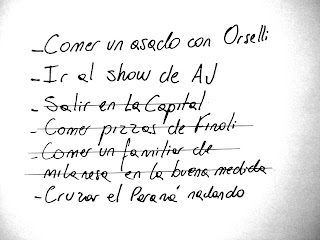 - Comer un asado con Orselli
- Ir al show de AJ
- Salir en la Capital
- Comer pizzas de Finoli
- Comer un familiar de
milanesa en la buena medida
- Cruzar el Paraná nadando